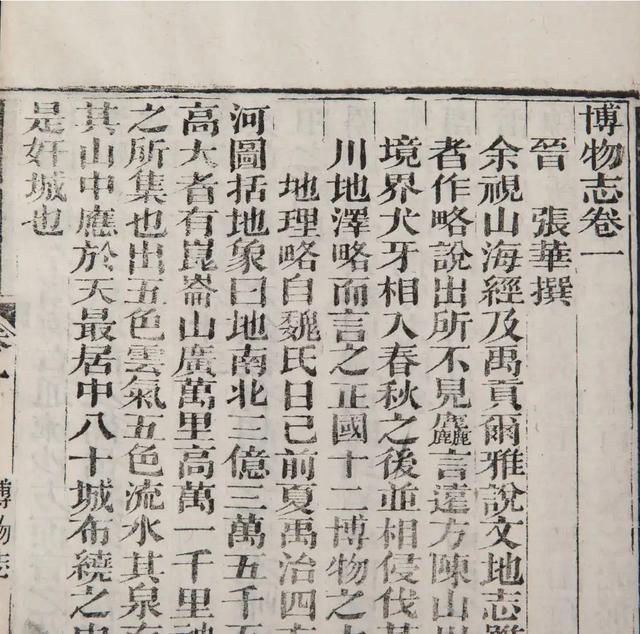 博物志卷一
晉 張華撰
余視山海經及禹貢爾雅說文地志雖
者作略說出所不見麤言遠方陳山川
境界犬牙相入春秋之後並相侵伐其
川地澤略而言之正國十二博物之士
地理略自魏氏日已前夏禹治四方
河圖括地象曰地南北三億三萬五千五
高大者有崑崙山廣萬里高萬一千里神
之所集也出五色雲氣五色流水其泉
其山中應於天最居中八十城布繞之中
是奸城也
博物志